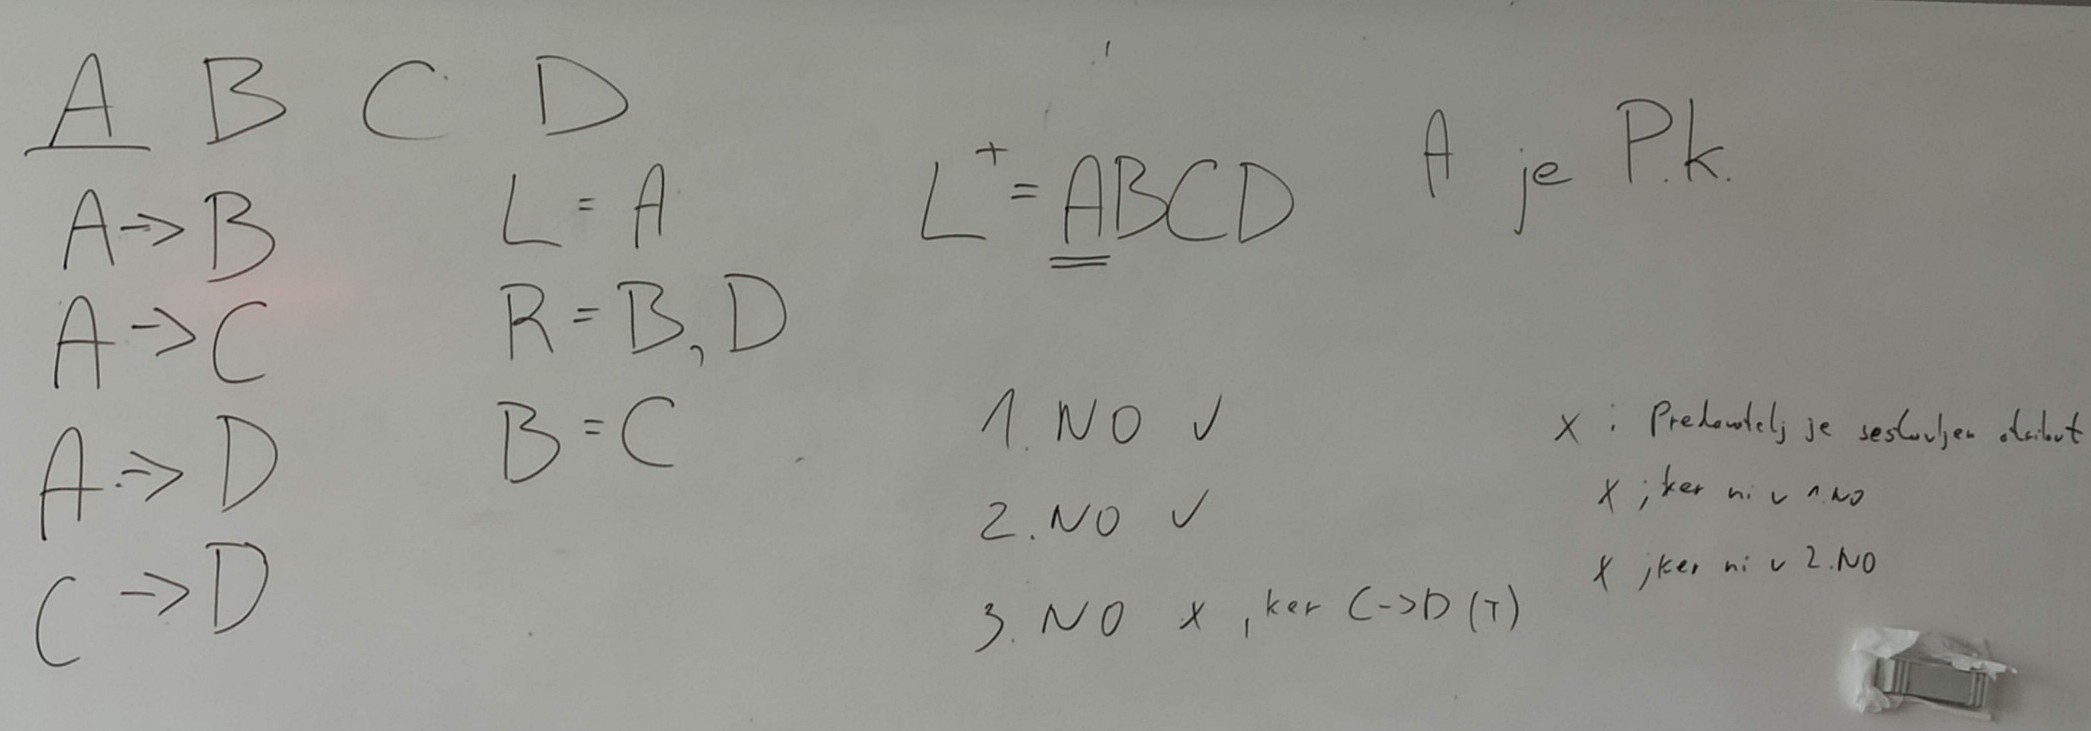 A B C D
A -> B
A -> C
A -> D
C -> D
L = A
R = B, D
B = C
L⁺ = ABCD
A je P.k.
1. NO ✓
2. NO ✓
3. NO x, ker C->D (T)
x : je sestavljen atribut
x ; ker ni v 1.NO
x ; ker ni v 2.NO